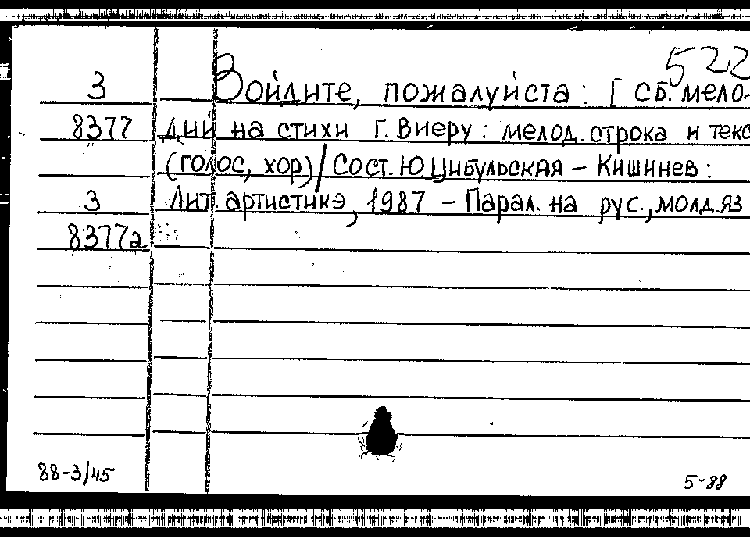 522
З Войдите, пожалуйста: [ сб. мело-
8377 дий на стихи Г. Виеру: мелод. строка и текс
(голос, хор) / Сост. Ю Цибульская – Кишинев:
З Лит. артистикэ, 1987 – Парал. на рус., молд. яз
8377а
88-3/45 5-88